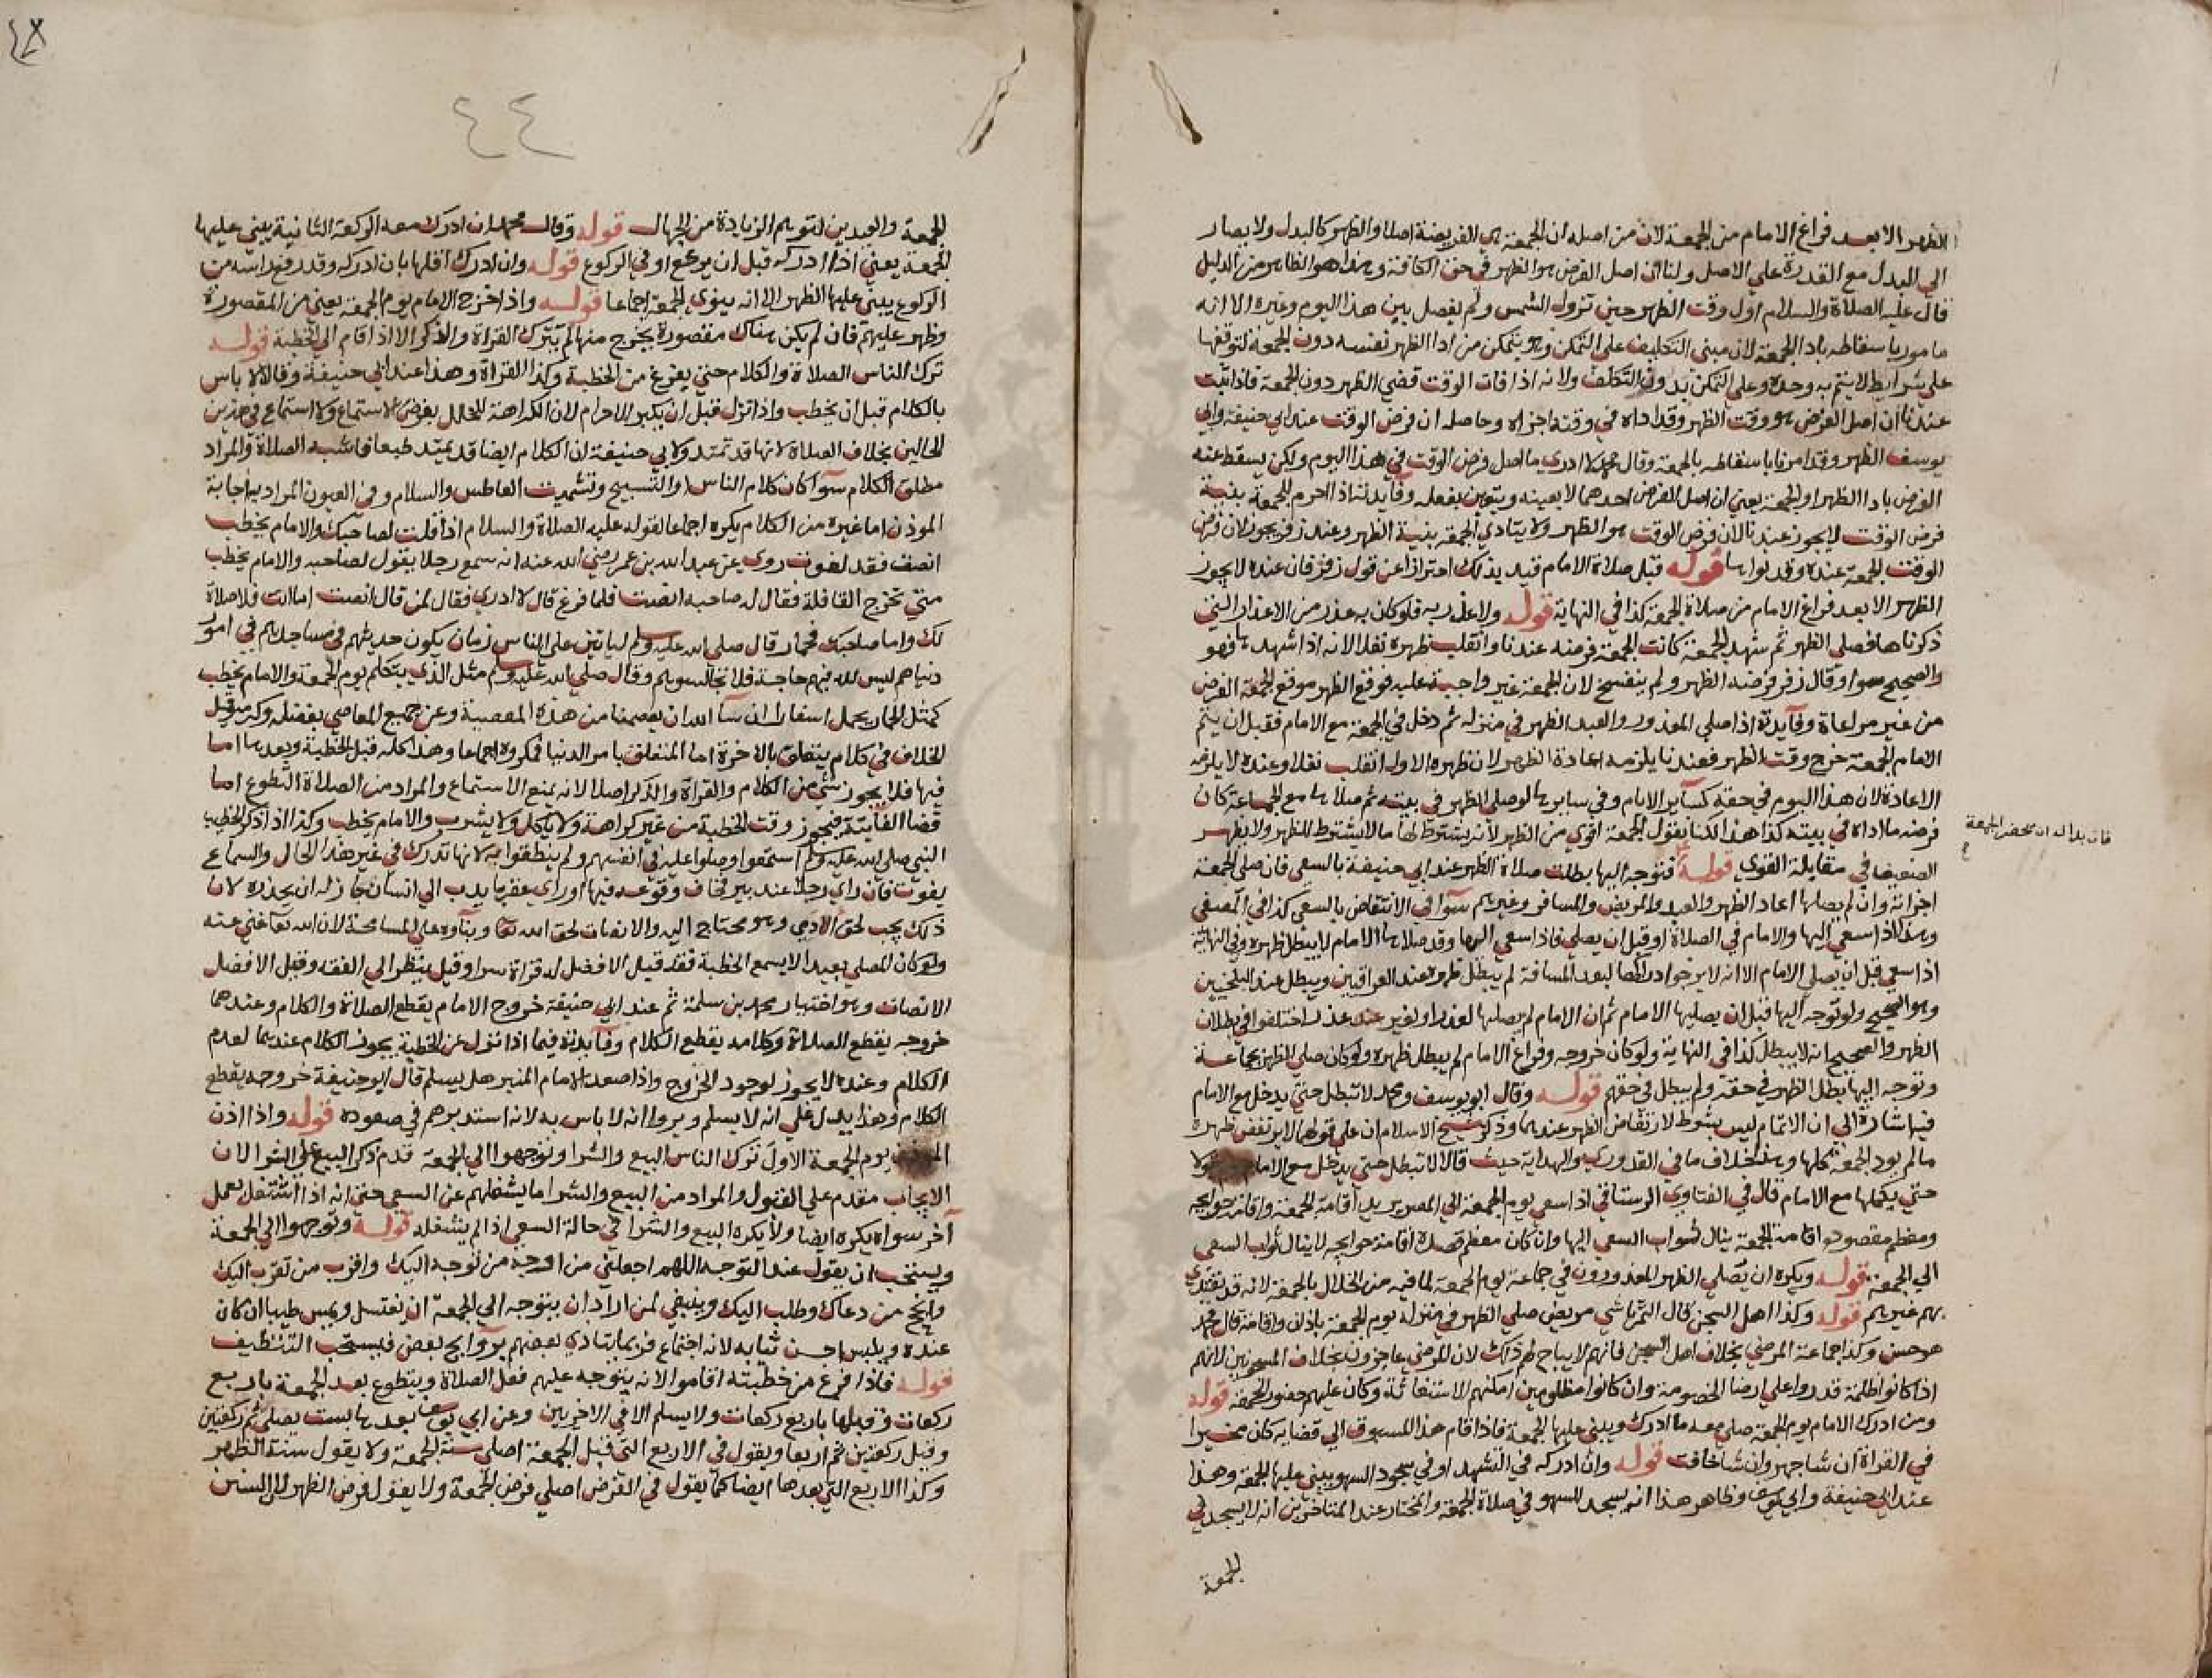 الظهر الا بعد فراغ الامام من الجمعة لان من اصله ان الجمعة هي الفريضة اصلا والظهر كالبدل ولا يصار
الي البدل مع القدرة علي الاصل ولنا ان اصل الفرض هو الظهر في حق الكافة وهذا هو الظاهر من الدليل
قال عليه الصلاة والسلام اول وقت الظهر حين تزول الشمس ولم يفصل بين هذا اليوم وغيره الا انه
مامور باسقاطه باداء الجمعة لان مبني التكليف علي التمكن وهو يتمكن من اداء الظهر بنفسه دون الجمعة لتوقفها
علي شرايط لا يتم به وحده وعلي التمكن يدور التكلف ولانه اذا فات الوقت قضي الظهر دون الجمعة فاذا ثبت
عندنا ان اصل الفرض هو وقت الظهر وقد اداه في وقته اجزاه وحاصله ان فرض الوقت عند ابي حنيفة وابي
يوسف الظهر وقد امرنا باسقاطه بالجمعة وقال محمد لا ادري ما اصل فرض الوقت في هذا اليوم ولكن يسقط عنه
الفرض باداء الظهر او الجمعة يعني ان اصل الفرض احدهما لا بعينه ويتعين بفعله وفايدته اذا احرم للجمعة بنية
فرض الوقت لا يجوز عندنا لان فرض الوقت هو الظهر ولا يتادي الجمعة بنية الظهر وعند زفر يجوز لان فرض
الوقت الجمعة عنده وقد نواها قوله قبل صلاة الامام قيد بذلك احترازا عن قول زفر فان عنده لا يجوز
الظهر الا بعد فراغ الامام من صلاة الجمعة كذا في النهاية قوله ولا عذر به فلو كان به عذر من الاعذار التي
ذكرناها فصلي الظهر ثم شهد الجمعة كانت الجمعة فرضه عندنا وانقلب ظهره نفلا لانه اذا شهدها فهو
والصحيح سوا وقال زفر فرضه الظهر ولم ينفسخ لان الجمعة غير واجبة عليه فوقع الظهر موقع الجمعة الفرض
من غير مراعاة وفايدته اذا صلي المعذور والعبد الظهر في منزله ثم دخل في الجمعة مع الامام فقبل ان يتم
الامام الجمعة خرج وقت الظهر فعندنا يلزمه اعادة الظهر لان ظهره الاول انقلب نفلا وعنده لا يلزمه
الاعادة لان هذا اليوم في حقه كساير الايام وفي سايرها لو صلي الظهر في بيته ثم صلاها مع الجماعة كان
فرضه ما اداه في بيته كذا هذا لكنا نقول الجمعة اقوي من الظهر لانه يشترط لها ما لا يشترط للظهر ولا يظهر
الضعيف في مقابلة القوي قوله فتوجه اليها بطلت صلاة الظهر عند ابي حنيفة بالسعي فان صلي الجمعة
فان بدا له ان يحضر الجمعة
اجزاته وان لم يصلها اعاد الظهر والعبد والمريض والمسافر وغيرهم سوا في الانتقاض بالسعي كذا في المصفي
وهذا اذا سعي اليها والامام في الصلاة او قبل ان يصلي فاذا سعي اليها وقد صلاها الامام لا يبطل ظهره وفي النهاية
اذا سعي قبل ان يصلي الامام الا انه لا يرجوا دراكها لبعد المسافة لم يبطل ظهره عند العراقيين ويبطل عند البلخيين
وهو الصحيح ولو توجه اليها قبل ان يصليها الامام ثم ان الامام لم يصلها لعذر او لغير عذر اختلفوا في بطلان
الظهر والصحيح انه لا يبطل كذا في النهاية ولو كان خروجه وفراغ الامام لم يبطل ظهره ولو كان صلي الظهر بجماعة
وتوجه اليها بطل الظهر في حقه ولم يبطل في حقهم قوله وقال ابو يوسف ومحمد لا تبطل حتي يدخل مع الامام
فيه اشارة الي ان الاتمام ليس بشرط لارتفاض الظهر عندهما وذكر شيخ الاسلام ان علي قولهما لا يرتفض ظهره
ما لم يود الجمعة كلها وهذا خلاف ما في القدوري والهداية حيث قالا لا تبطل حتي يدخل مع الامام
حتي يكملها مع الامام قال في الفتاوي الرستاقي اذا سعي يوم الجمعة الي المصر يريد اقامة الجمعة واقامة حوايجه
ومعظم مقصوده اقامة الجمعة ينال ثواب السعي اليها وان كان معظم قصده اقامة حوايجه لا ينال ثواب السعي
الي الجمعة قوله ويكره ان يصلي الظهر المعذورون في جماعة يوم الجمعة لما فيه من الخلال بالجمعة لانه قد يقتدي
بهم غيرهم قوله وكذا اهل السجن قال التمرتاشي مريض صلي الظهر في منزله يوم الجمعة باذان واقامة قال محمد
هو حسن وكذا جماعة المرضي بخلاف اهل السجن فانهم لا يباح لهم ذلك لان المرضي عاجزون بخلاف المسجونين لانهم
اذا كانوا ظلمة قدروا علي ارضا الخصومة وان كانوا مظلومين امكنهم الاستغاثة وكان عليهم حضور الجمعة قوله
ومن ادرك الامام يوم الجمعة صلي معه ما ادرك ويبني عليها الجمعة فاذا قام هذا المسبوق الي قضايه كان مخيرا
في القراة ان شا جهر وان شا خافت قوله وان ادركه في التشهد او في سجود السهو بني عليها الجمعة وهذا
عند ابي حنيفة وابي يوسف وظاهر هذا انه يسجد للسهو في صلاة الجمعة والمختار عند المتاخرين انه لا يسجد في
الجمعة
٤٤
الجمعة والعيدين لتوهم الزيادة من الجهال قوله وقال محمد ان ادرك معه الركعة الثانية بني عليها
الجمعة يعني اذا ادركه قبل ان يركع او في الركوع قوله وان ادرك اقلها بان ادركه وقد رفع راسه من
الركوع يبني عليها الظهر الا انه ينوي الجمعة اجماعا قوله واذا خرج الامام يوم الجمعة يعني من المقصورة
وظهر عليهم فان لم يكن هناك مقصورة يخرج منها لم يترك القراة والذكر الا اذا قام الي الخطبة قوله
ترك الناس الصلاة والكلام حتي يفرغ من الخطبة وكذا القراة وهذا عند ابي حنيفة وقالا لا باس
بالكلام قبل ان يخطب واذا نزل قبل ان يكبر الاحرام لان الكراهة للخلل بفرض الاستماع ولا استماع في هذين
الحالين بخلاف الصلاة لانها قد تمتد ولابي حنيفة ان الكلام ايضا قد يمتد طبعا فاشبه الصلاة والمراد
مطلق الكلام سوا كان كلام الناس او التسبيح وتشميت العاطس والسلام وفي العيون المراد به اجابة
الموذن اما غيره من الكلام يكره اجماعا لقوله عليه الصلاة والسلام اذا قلت لصاحبك والامام يخطب
انصت فقد لغوت روي عن عبد الله بن عمر رضي الله عنه انه سمع رجلا يقول لصاحبه والامام يخطب
متي تخرج القافلة فقال له صاحبه انصت فلما فرغ قال لا ادري فقال لمن قال انصت اما انت فلا صلاة
لك واما صاحبك فحمار قال صلي الله عليه وسلم لياتين علي الناس زمان يكون حديثهم في مساجدهم في امور
دنياهم ليس لله فيهم حاجة فلا تجالسوهم وقال صلي الله عليه وسلم مثل الذي يتكلم يوم الجمعة والامام يخطب
كمثل الحمار يحمل اسفارا ان شا الله ان يعصمنا من هذه المعصية وعن جميع المعاصي بفضله وكرمه وقيل
الخلاف في كلام يتعلق بالاخرة اما المتعلق بامر الدنيا فمكروه اجماعا وهذا كله قبل الخطبة وبعدها اما
فيها فلا يجوز شي من الكلام والقراة والذكر اصلا لانه يمنع الاستماع والمراد من الصلاة التطوع اما
قضا الفايتة فيجوز وقت الخطبة من غير كراهة ولا ياكل ولا يشرب والامام يخطب وكذا اذا ذكر الخطيب
النبي صلي الله عليه وسلم استمعوا وصلوا عليه في انفسهم ولم ينطقوا به لانها تدرك في غير هذا الحال والسماع
يفوت فان راي رجلا عند بير فخاف وقوعه فيها او راي عقربا يدب الي انسان جاز له ان يحذره لان
ذلك يجب لحق الادمي وهو محتاج اليه والانصات لحق الله تعا وبناوه علي المسامحة لان الله تعا غني عنه
ولو كان المصلي بعيدا لا يسمع الخطبة فقد قيل الافضل له قراة سرا وقيل ينظر الي الفقه وقيل الافضل
الانصات وهو اختيار محمد بن سلمة ثم عند ابي حنيفة خروج الامام يقطع الصلاة والكلام وعندهما
خروجه يقطع الصلاة وكلامه يقطع الكلام وفايدته فيما اذا نزل عن الخطبة يجوز الكلام عندهما لعدم
الكلام وعنده لا يجوز لوجود الخروج واذا صعد الامام المنبر هل يسلم قال ابو حنيفة خروجه يقطع
الكلام وهذا يدل علي انه لا يسلم ويروا انه لا باس به لانه استدبرهم في صعوده قوله واذا اذن
يوم الجمعة الاول ترك الناس البيع والشرا وتوجهوا الي الجمعة قدم ذكر البيع علي الشرا لان
الايجاب مقدم علي القبول والمراد من البيع والشرا ما يشغلهم عن السعي حتي انه اذا اشتغل بعمل
آخر سواه يكره ايضا ولا يكره البيع والشرا في حالة السعي اذا لم يشغله قوله وتوجهوا الي الجمعة
ويستحب ان يقول عند التوجه اللهم اجعلني من اوجه من توجه اليك واقرب من تقرب اليك
وانجح من دعاك وطلب اليك وينبغي لمن اراد ان يتوجه الي الجمعة ان يغتسل ويمس طيبا ان كان
عنده ويلبس احسن ثيابه لانه اجتماع فربما يتادي بعضهم بروايح بعض فيستحب التنظيف
قوله فاذا فرغ من خطبته اقاموا لانه يتوجه عليهم فعل الصلاة ويتطوع بعد الجمعة باربع
ركعات وقبلها باربع ركعات ولا يسلم الا في الاخريين وعن ابي يوسف بعدها لست يصلي ثم ركعتين
وقبل ركعتين ثم اربعا ويقول في الاربع التي قبل الجمعة اصلي سنة الجمعة ولا يقول سنة الظهر
وكذا الاربع التي بعدها ايضا كما يقول في الفرض اصلي فرض الجمعة ولا يقول فرض الظهر لان السنن